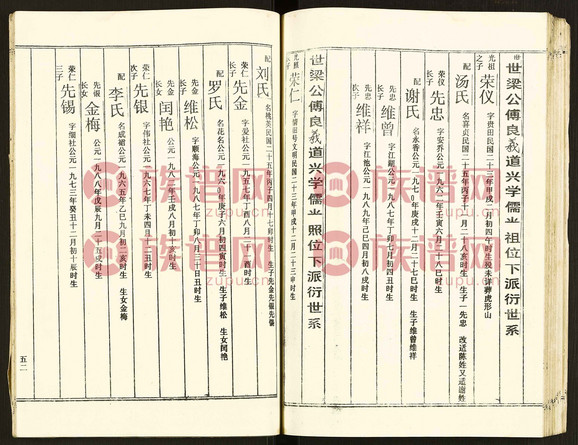 世梁公傅良義道兴学儒 祖位下派衍世系
光祖之子 荣仪 字贵田民国二十三年甲戌二月初四午时生殁未详葬虎形山
配 汤氏 名喜贞民国二十五年丙子十一月二十八亥时生 生子一先忠 改适陈姓又适谢姓
荣仪长子 先忠 字安乔公元一九六二年壬寅六月三十八巳时生
配 谢氏 名永香公元一九七0年庚戌十二月二十七巳时生 生子维曾维祥
先忠长子 维曾 字江超公元一九八七年丁卯七月初四丑时生
先忠次子 维祥 字江他公元一九八九年己巳四月初八戌时生
世梁公傅良義道兴学儒 照位下派衍世系
光祖之子 荣仁 字清田号文明民国二十三年甲戌十二月二十三申时生
配 刘氏 名桃英民国二十五年丙子四月十七卯时生 生子先金先银先锡
荣仁长子 先金 字爱社公元一九五七年丁酉八月二十酉时生
配 罗氏 名花名公元一九六七年丁未六月初四寅时生 生子维松 生女闰艳
先金长子 维松 字顺海公元一九八七年丁卯八月三十日丑时生
先金长女 闰艳 公元一九八二年壬戌八月十亥时生
荣仁次子 先银 字伟社公元一九六七年丁未四月二十戌时生
配 李氏 名成裙公元一九六五年乙巳九月初二亥时生 生女金梅
先银长女 金梅 公元一九八八年戊辰九月二十五戌时生
荣仁三子 先锡 字细社公元一九七三年癸丑十二月初十辰时生
五二
族谱网
zupu.cn